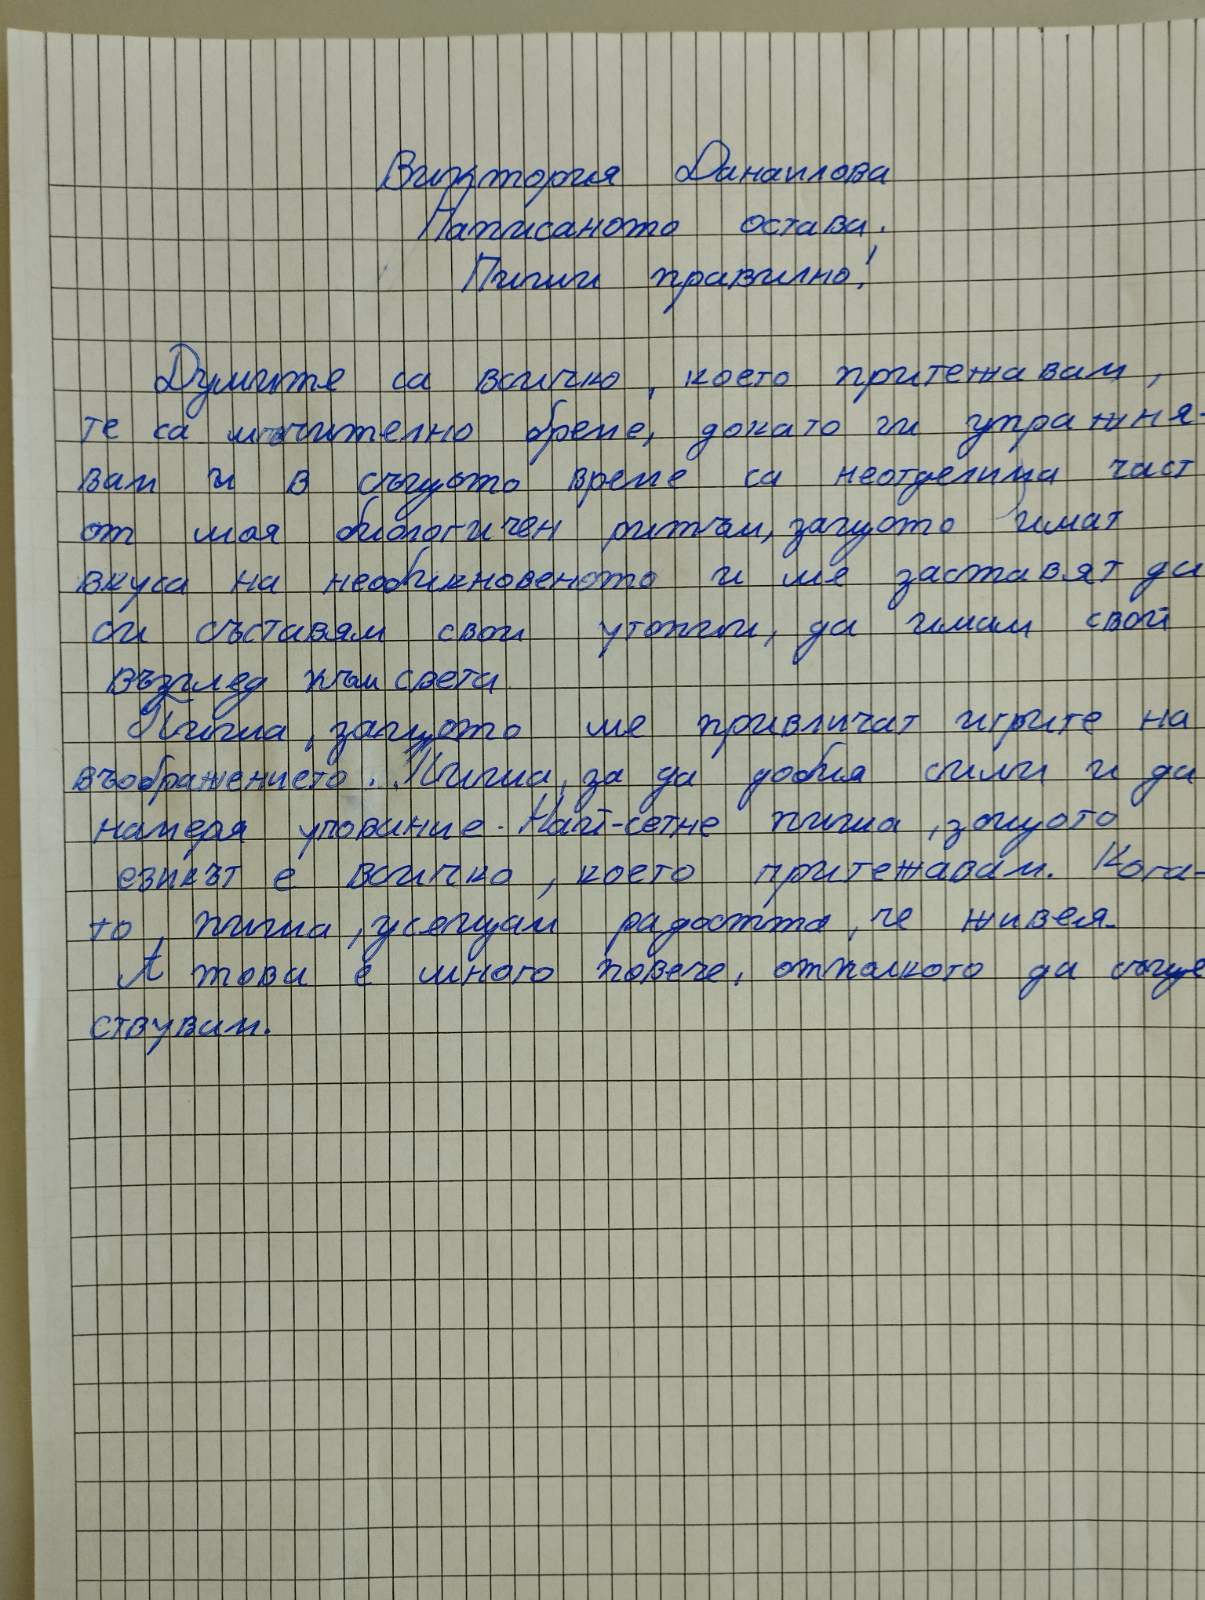 Виктория Данаилова
Написаното остава.
Пиши правилно!
Думите са всичко, което притежавам,
те са мъчително бреме, докато ги упражня-
вам и в същото време са неотделима част
от моя биологичен ритъм, защото имат
вкуса на необикновеното и ме заставят да
си съставям свои утопии, да имам свой
възглед към света
Пиша, защото ме привличат игрите на
въображението. Пиша, за да добия сили и да
намеря упование. Най-сетне пиша, защото
езикът е всичко, което притежавам. Кога-
то пиша, усещам радостта, че живея.
А това е много повече, отколкото да съще
ствувам.